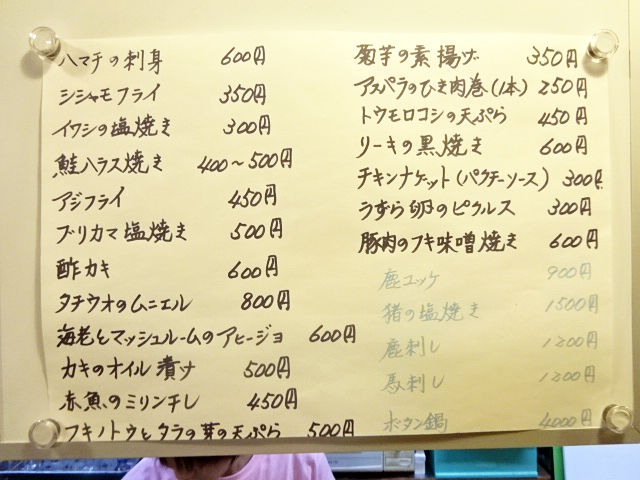 ハマチの刺身 600円
シシャモフライ 350円
イワシの塩焼き 300円
鮭ハラス焼き 400~500円
アジフライ 450円
ブリカマ塩焼き 500円
酢カキ 600円
タチウオのムニエル 800円
海老とマッシュルームのアヒージョ 600円
カキのオイル漬け 500円
赤魚のミリンチレ 450円
フキノトウとタラの芽の天ぷら 500円
菊芋の素揚げ 350円
アスパラのひき肉巻(1本) 250円
トウモロコシの天ぷら 450円
リーキの黒焼き 600円
チキンナゲット(パクチーソース) 300円
うずら卵のピクルス 300円
豚肉のフキ味噌焼き 600円
鹿ユッケ 900円
猪の塩焼き 1500円
鹿刺し 1200円
馬刺し 1200円
ボタン鍋 4000円